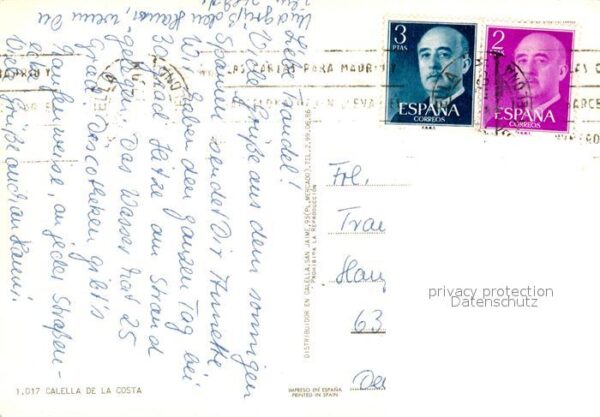 Liebe Traudel!
Viele Grüße aus dem sonnigen
Spanien sendet Dir Annette
Wir haben den ganzen Tag bei
30 Grad Hitze am Strand
gelegen. Das Wasser hat 25
Grad. Discotheken gibt's
haufenweise, an jeder Straßen-
ecke.
Viele Grüße auch an Hanni.
Und grüß den
wenn Du
3
PTAS
ESPAÑA
CORREOS
2
PTAS
ESPAÑA
CORREOS
PARA MADRID Y
Frl.
Trau
Hau
63
Deu
privacy protection
Datenschutz
DISTRIBUIDOR EN CALELLA, SAN JAIME, 95 (PL. MERCADO), TEL. 2.99.06.86
PROHIBIDA LA REPRODUCCION
1.017 CALELLA DE LA COSTA
IMPRESO EN ESPAÑA
PRINTED IN SPAIN